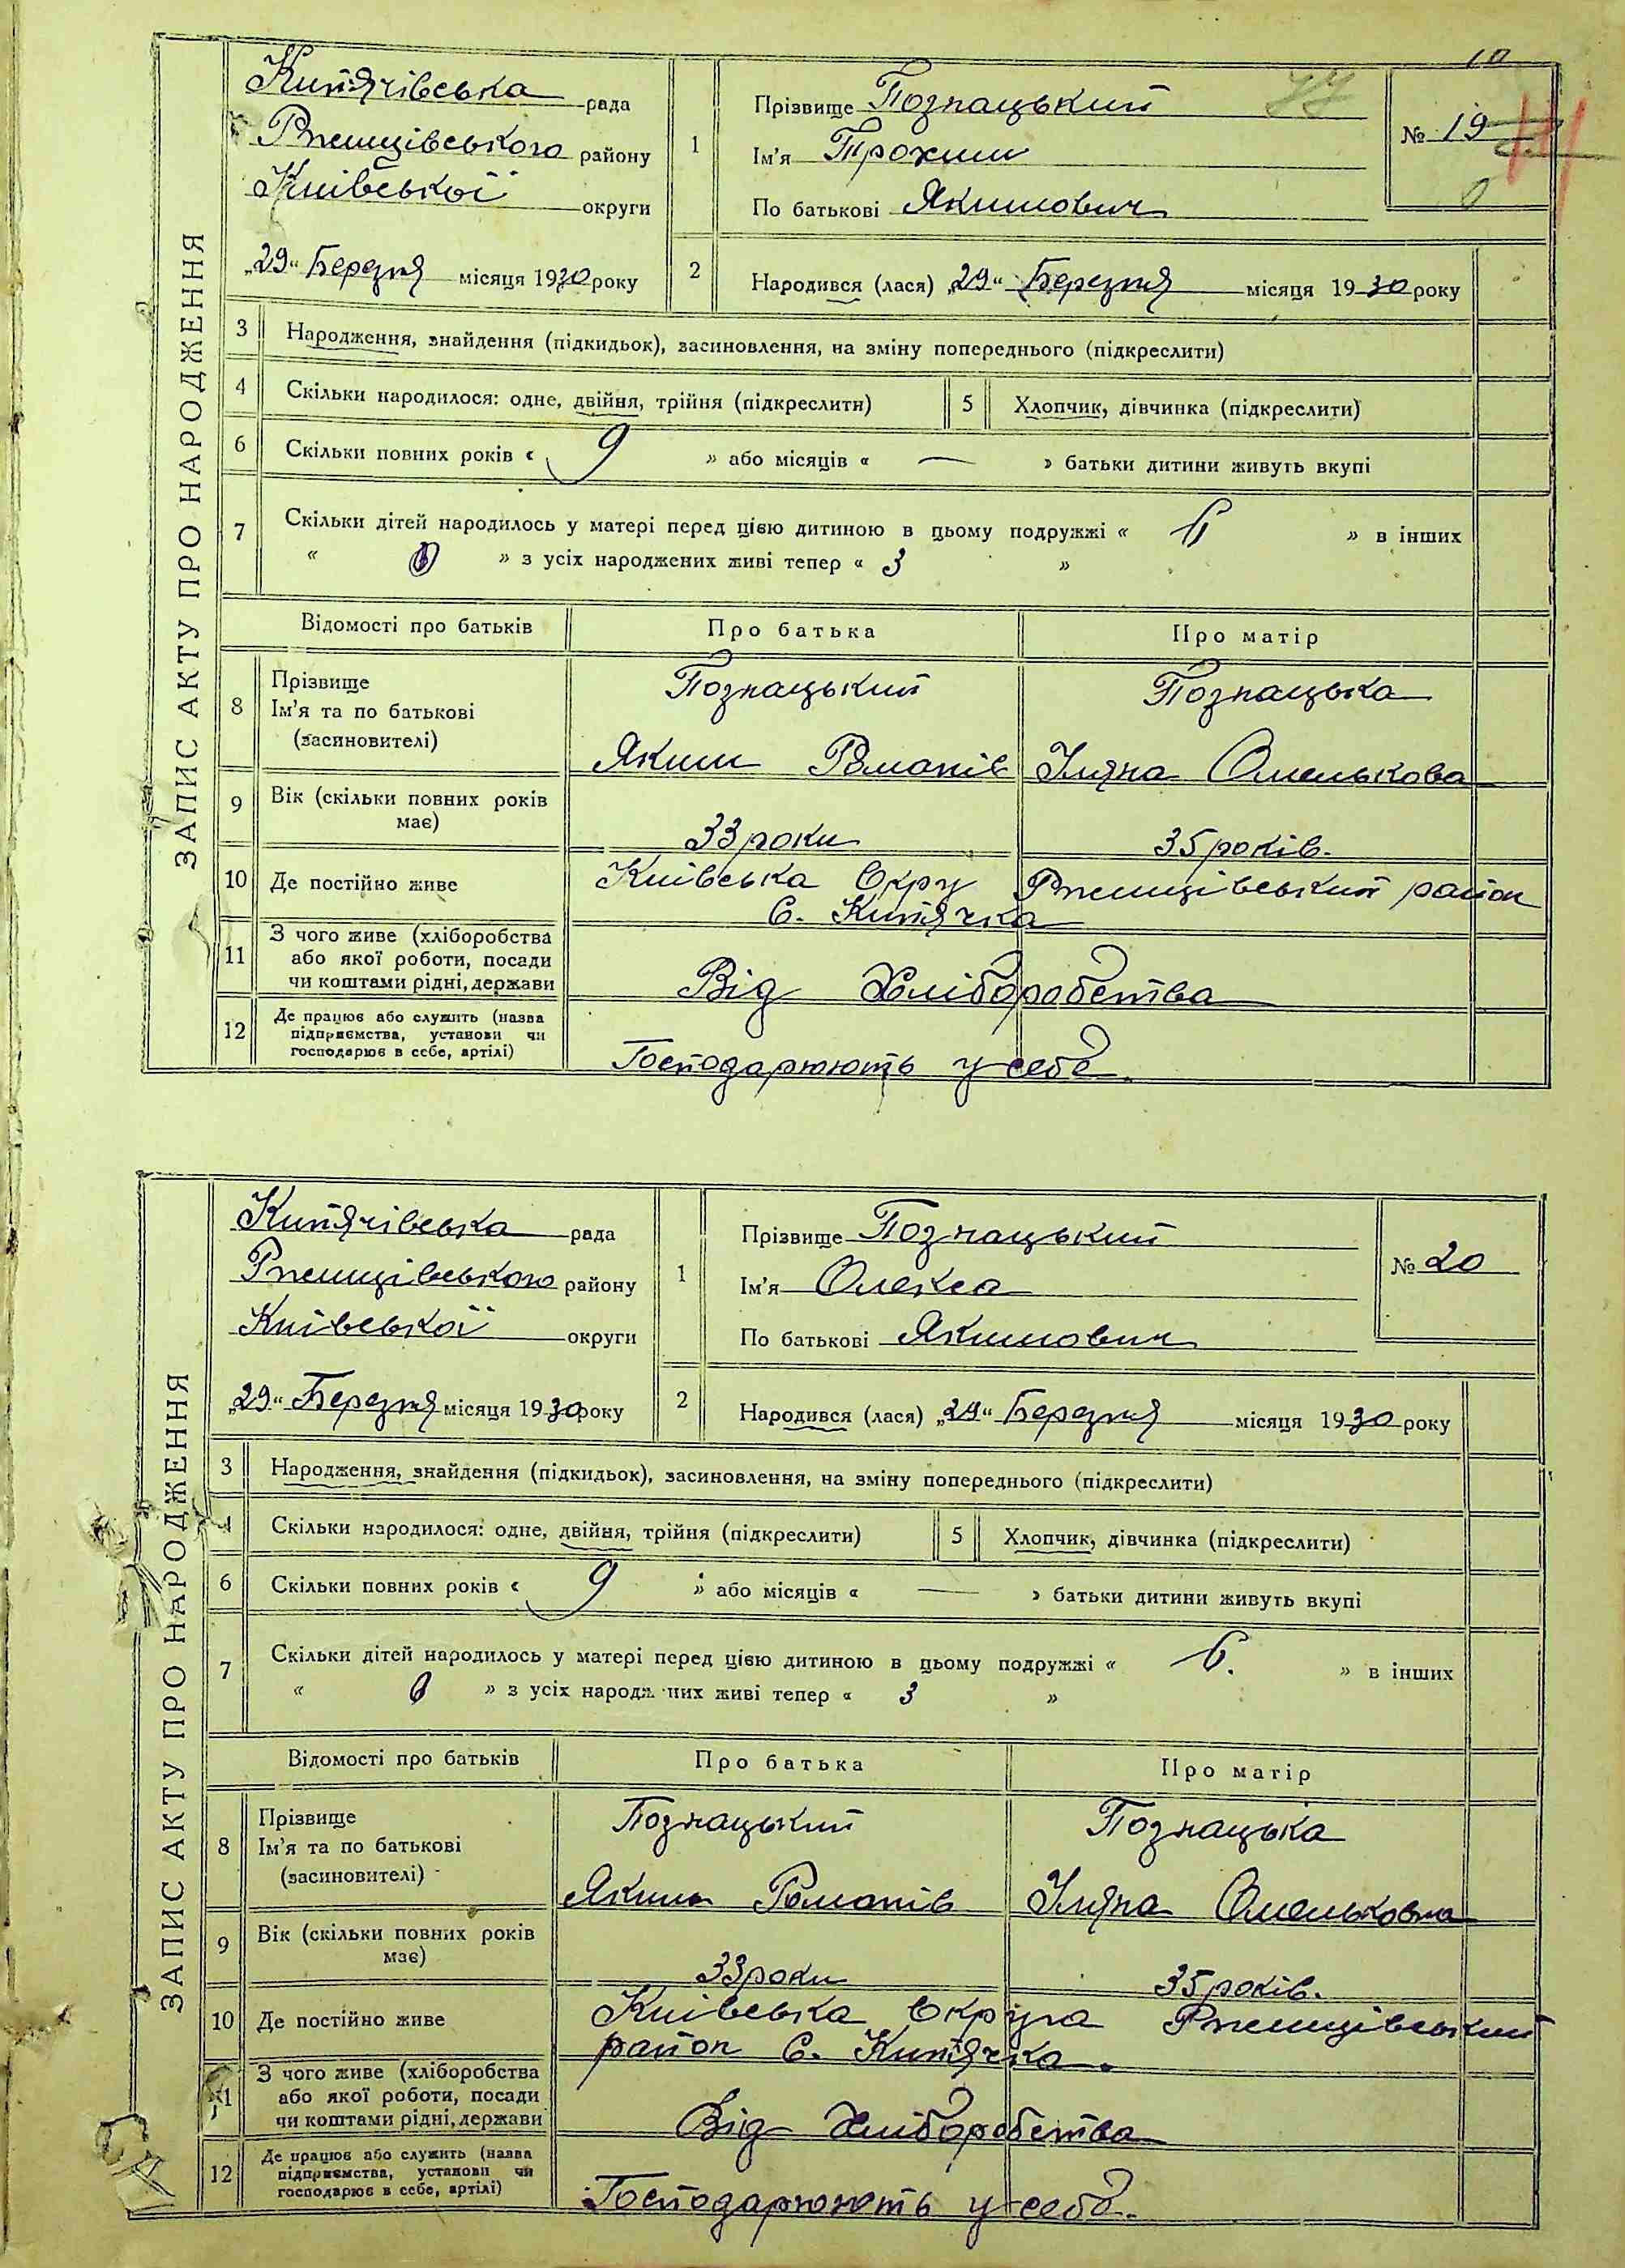 ЗАПИС АКТУ ПРО НАРОДЖЕННЯ
Кипячівська рада
Ржищівського району
Київської округи
„29“ Березня місяця 1930 року
1
Прізвище Познацький
Ім'я Трохим
По батькові Якимович
№ 19
2
Народився (лася) „29“ Березня місяця 1930 року
3 Народження, знайдення (підкидьок), засиновлення, на зміну попереднього (підкреслити)
4 Скільки народилося: одне, двійня, трійня (підкреслити) 5 Хлопчик, дівчинка (підкреслити)
6 Скільки повних років « 9 » або місяців « — » батьки дитини живуть вкупі
7 Скільки дітей народилось у матері перед цією дитиною в цьому подружжі « » в інших
« » з усіх народжених живі тепер « 3 »
Відомості про батьків Про батька Про матір
8 Прізвище Познацький Познацька
Ім'я та по батькові
(засиновителі)
Яким Романів Уляна Омелькова
9 Вік (скільки повних років
має)
33 роки 35 років.
10 Де постійно живе Київська Окру Ржищівський район
С. Кипячка
11 З чого живе (хліборобства
або якої роботи, посади
чи коштами рідні, держави
Від Хліборобства
12 Де працює або служить (назва
підприємства, установи чи
господарює в себе, артілі)
Господарюють у себе.
ЗАПИС АКТУ ПРО НАРОДЖЕННЯ
Кипячівська рада
Ржищівського району
Київської округи
„29“ Березня місяця 1930 року
1
Прізвище Познацький
Ім'я Олекса
По батькові Якимович
№ 20
2
Народився (лася) „29“ Березня місяця 1930 року
3 Народження, знайдення (підкидьок), засиновлення, на зміну попереднього (підкреслити)
4 Скільки народилося: одне, двійня, трійня (підкреслити) 5 Хлопчик, дівчинка (підкреслити)
6 Скільки повних років « 9 » або місяців « — » батьки дитини живуть вкупі
7 Скільки дітей народилось у матері перед цією дитиною в цьому подружжі « 6. » в інших
« » з усіх народжених живі тепер « 3 »
Відомості про батьків Про батька Про матір
8 Прізвище Познацький Познацька
Ім'я та по батькові
(засиновителі)
Яким Романів Уляна Омельковна
9 Вік (скільки повних років
має)
33 роки 35 років.
10 Де постійно живе Київська Округа Ржищівський
район С. Кипячка.
11 З чого живе (хліборобства
або якої роботи, посади
чи коштами рідні, держави
Від Хліборобства
12 Де працює або служить (назва
підприємства, установи чи
господарює в себе, артілі)
Господарюють у себе.